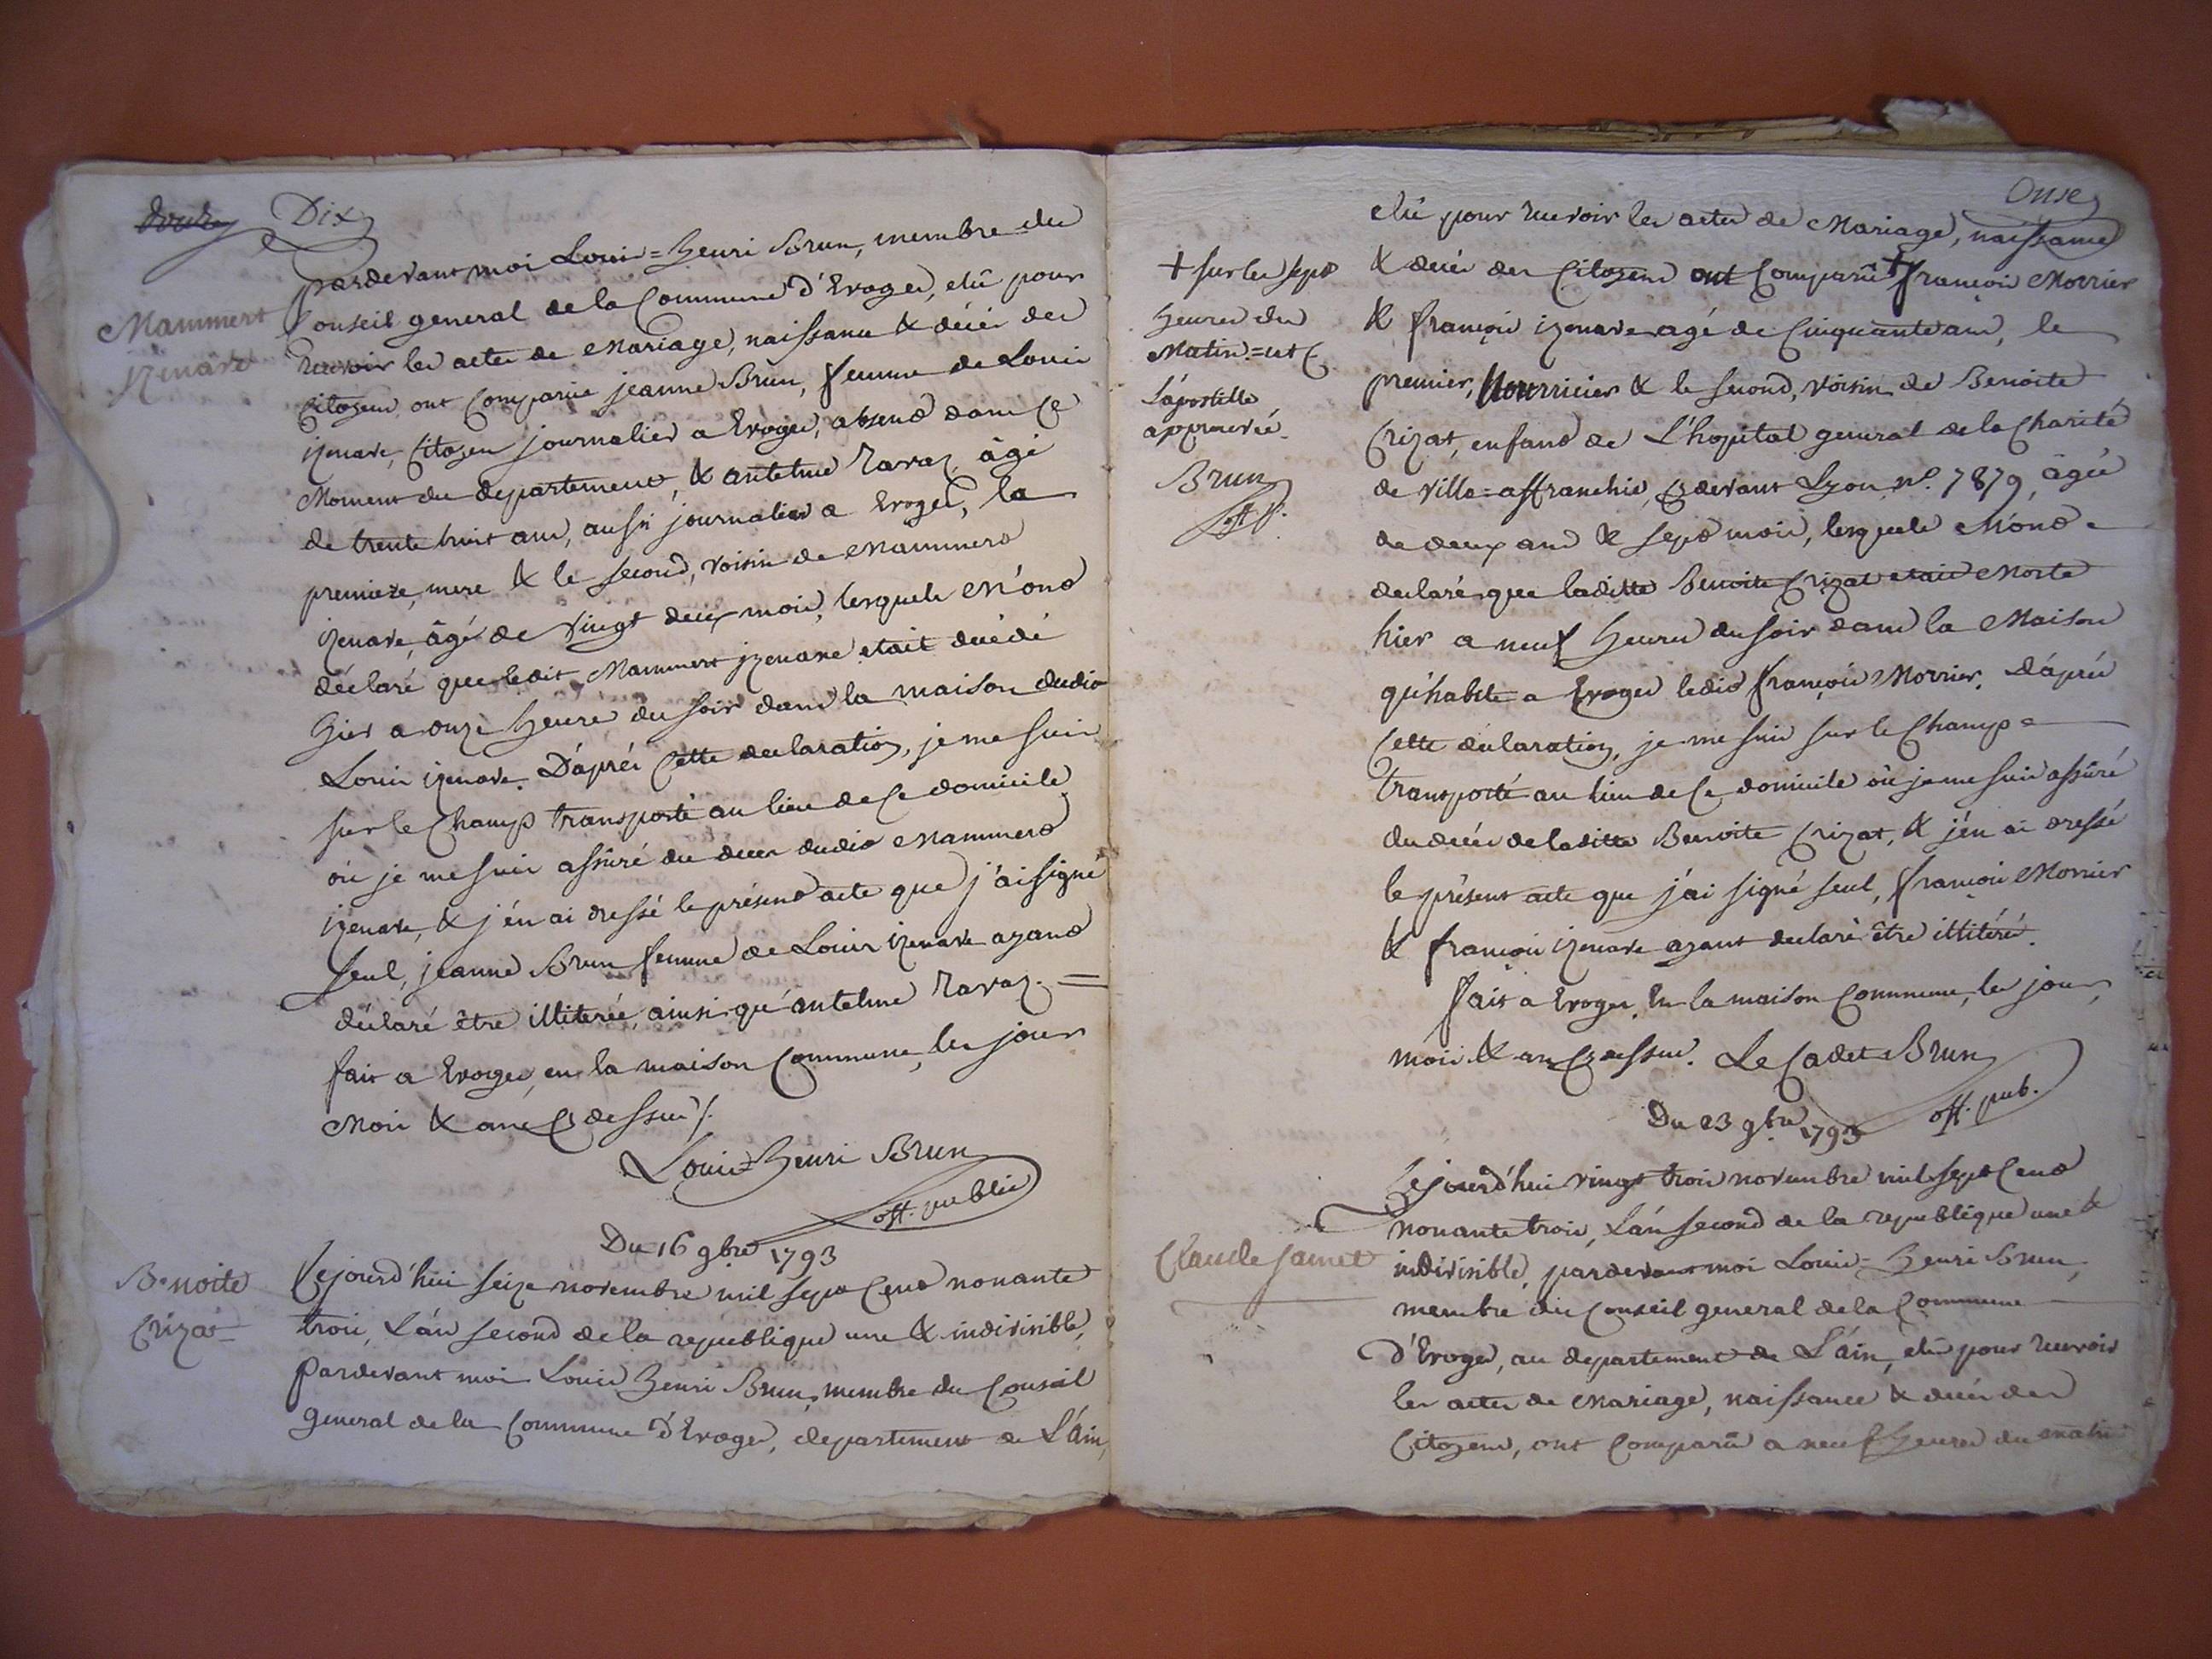 douze Dix
Mammert
izenave
pardevant moi Louis=henri Brun, membre du
Conseil general de la Commune d'Evoges, elû pour
recevoir les actes de Mariage, naissance & décés des
Citoyens, ont comparue jeanne Brun, femme de Louis
izenave, Citoyen journalier a Evoges, absent dans ce
Moment du departement, & antelme Ravaz, âgé
de trente huit ans, aussi journalier a Evoges, la
premiere, mere & le second, voisin de Mammert
izenave, âgé de vingt deux mois, lesquels M'ont
déclaré que ledit Mammert izenave etait décédé
hier a onze heures du soir dans la maison dudit
Louis izenave. D'aprés Cette declaration, je me suis
sur le Champ transporté au lieu de Ce domicile,
où je me suis assûré du deces dudit Mammert
izenave, & j'én ai dressé le présent acte que j'ai signé
seul, jeanne Brun femme de Louis izenave ayant
déclaré être illiterée, ainsi qu'antelme Ravaz. =
fait a Evoges, en la maison Commune, les jour
Mois & an Cy dessus /.
Louis=Henri Brun
off. public
Du 16 9bre 1793
Benoite
Crizat
Cejourd'hui seize novembre mil sept Cent nonante
trois, L'án second de la republique une & indivisible,
pardevant moi Louis Henri Brun, membre du Conseil
general de la Commune d'Evoges, departement de L'Ain,
Onze
elû pour recevoir les actes de Mariage, naissance
& décés des Citoyens ont Comparû + françois Morrier
& françois izenave agé de Cinquante ans, le
premier, Nourricier & le second, voisin de Benoite
Crizat, enfant de L'hopital general de la Charité
de ville=affranchie, cy devant Lyon, n.o 7879, âgée
de deux ans & sept mois, lesquels M'ont
declaré que laditte Benoite Crizat etait Morte
hier a neuf heures du soir dans la Maison
qu'habite a Evoges ledit françois Morrier. D'áprés
Cette déclaration, je me suis sur le Champ =
transporté au lieu de Ce domicile où je me suis assûré
du décés de laditte Benoite Crizat, & j'én ai dressé
le présent acte que j'ai signé seul, françois Morrier
& françois izenave ayant declaré être illitérés.
fait a Evoges, En la maison Commune, les jour,
mois & an Cy dessus. Le Cadet Brun
off. pub.
+ sur les sept
heures du
Matin.=et
L'apostille
approuvée.
Brun
off. p.
Du 23 9bre 1793
Claude Jamet
Cejourd'hui vingt trois novembre mil sept Cent
nonante trois, L'án second de la republique une &
indivisible, pardevant moi Louis=Henri Brun,
membre du Conseil general de la Commune
d'Evoges, au departement de L'áin, elû pour recevoir
les actes de Mariage, naissance & décés des
Citoyens, ont Comparû a neuf heures du matin